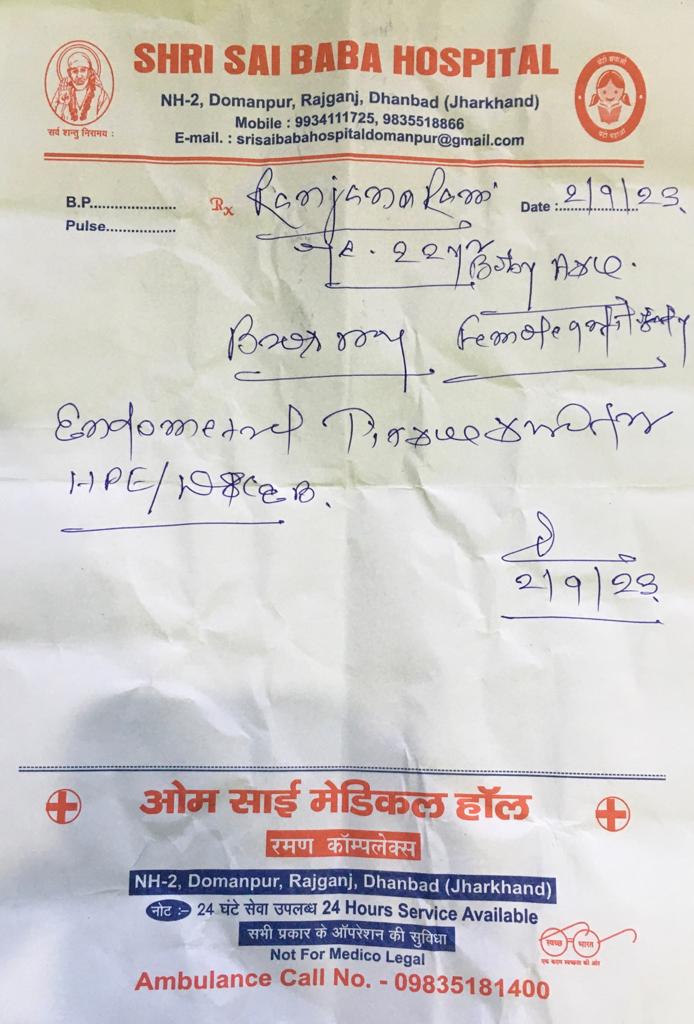 SHRI SAI BABA HOSPITAL
सर्व शन्तु निरामय :
NH-2, Domanpur, Rajganj, Dhanbad (Jharkhand)
Mobile : 9934111725, 9835518866
E-mail. : srisaibabahospitaldomanpur@gmail.com
बेटी बचाओ
बेटी पढ़ाओ
B.P.................... Rx Ranjana Date :..2/9/23.
Pulse.................
22
Endometrial
HPE/
2/9/23
ओम साई मेडिकल हॉल
रमण कॉम्पलेक्स
NH-2, Domanpur, Rajganj, Dhanbad (Jharkhand)
नोट :- 24 घंटे सेवा उपलब्ध 24 Hours Service Available
सभी प्रकार के ऑपरेशन की सुविधा
Not For Medico Legal
स्वच्छ भारत
एक कदम स्वच्छता की ओर
Ambulance Call No. - 09835181400